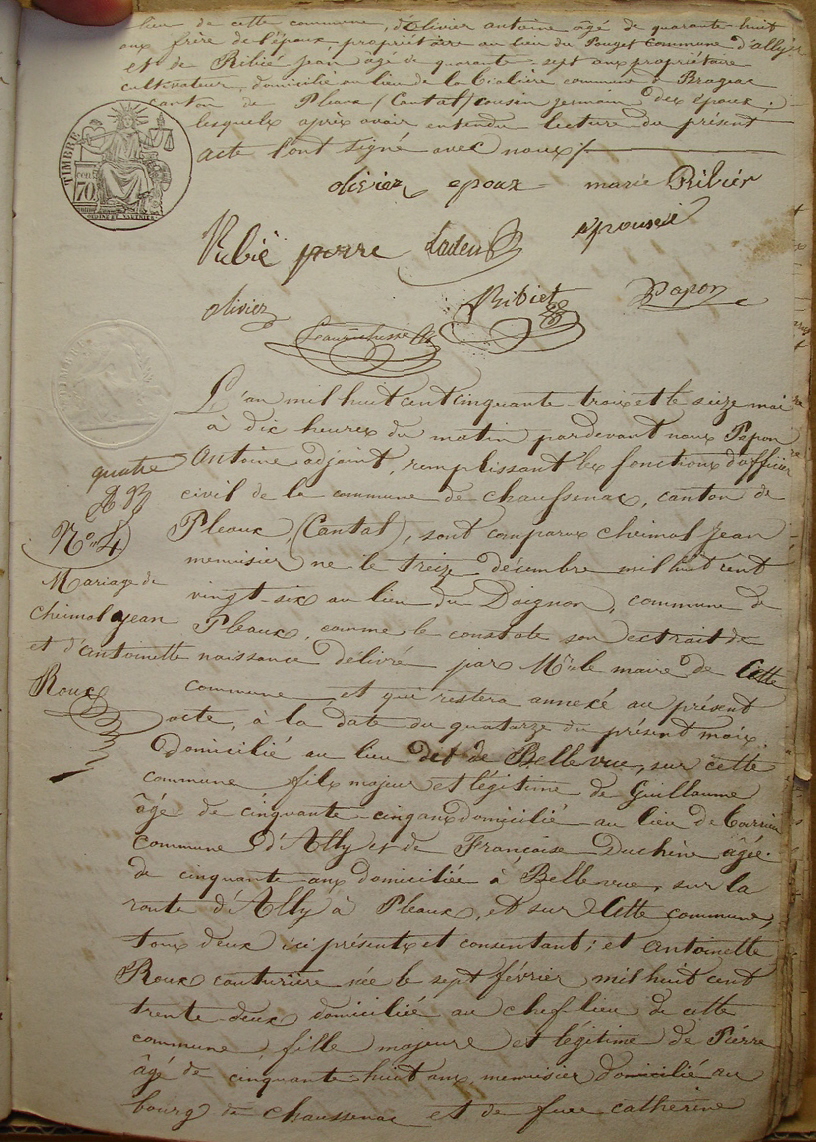 lieu de cette commune, d'olivier antoine âgé de quarante huit
ans frère de l'époux, propriétaire au lieu du Pouget commune d'ally
et de Ribié jean âgé de quarante-sept ans propriétaire
cultivateur, domicilié au lieu de la commune de Brageac
canton de Pleaux (Cantal) cousin germain des époux;
lesquels après avoir entendu lecture du présent
acte l'ont signé avec nous
olivier époux marie Ribier
épouse
Rubié pierre
olivier Ribiet Papon
TIMBRE
70
L'an mil huit cent cinquante trois et le seize mai
à dix heures du matin pardevant nous Papon
quatre
Antoine adjoint, remplissant les fonctions d'officier
civil de la commune de chaussenac, canton de
No 4
Pleaux, (Cantal), sont comparus cheimol Jean
menuisier né le treize décembre mil huit cent
Mariage de
vingt-six au lieu du Doignon, commune de
cheimol jean
Pleaux, comme le constate son extrait de
et d'antoinette
naissance délivré par Mr le maire de cette
Roux
commune et qui restera annexé au présent
acte, à la date du quatorze du présent mois
domicilié au lieu dit de Bellevue, sur cette
commune fils majeur et légitime de Guillaume
âgé de cinquante-cinq ans domicilié au lieu de
commune d'Ally et de Françoise Duchine âgée
de cinquante ans domiciliée à Bellevue, sur la
route d'Ally à Pleaux, et sur cette commune,
tous deux ici présents et consentant; et antoinette
Roux couturière née le sept février mil huit cent
trente-deux domiciliée au chef-lieu de cette
commune fille majeure et légitime de Pierre
âgé de cinquante-huit ans, menuisier domicilié au
bourg de chaussenac et de feue catherine